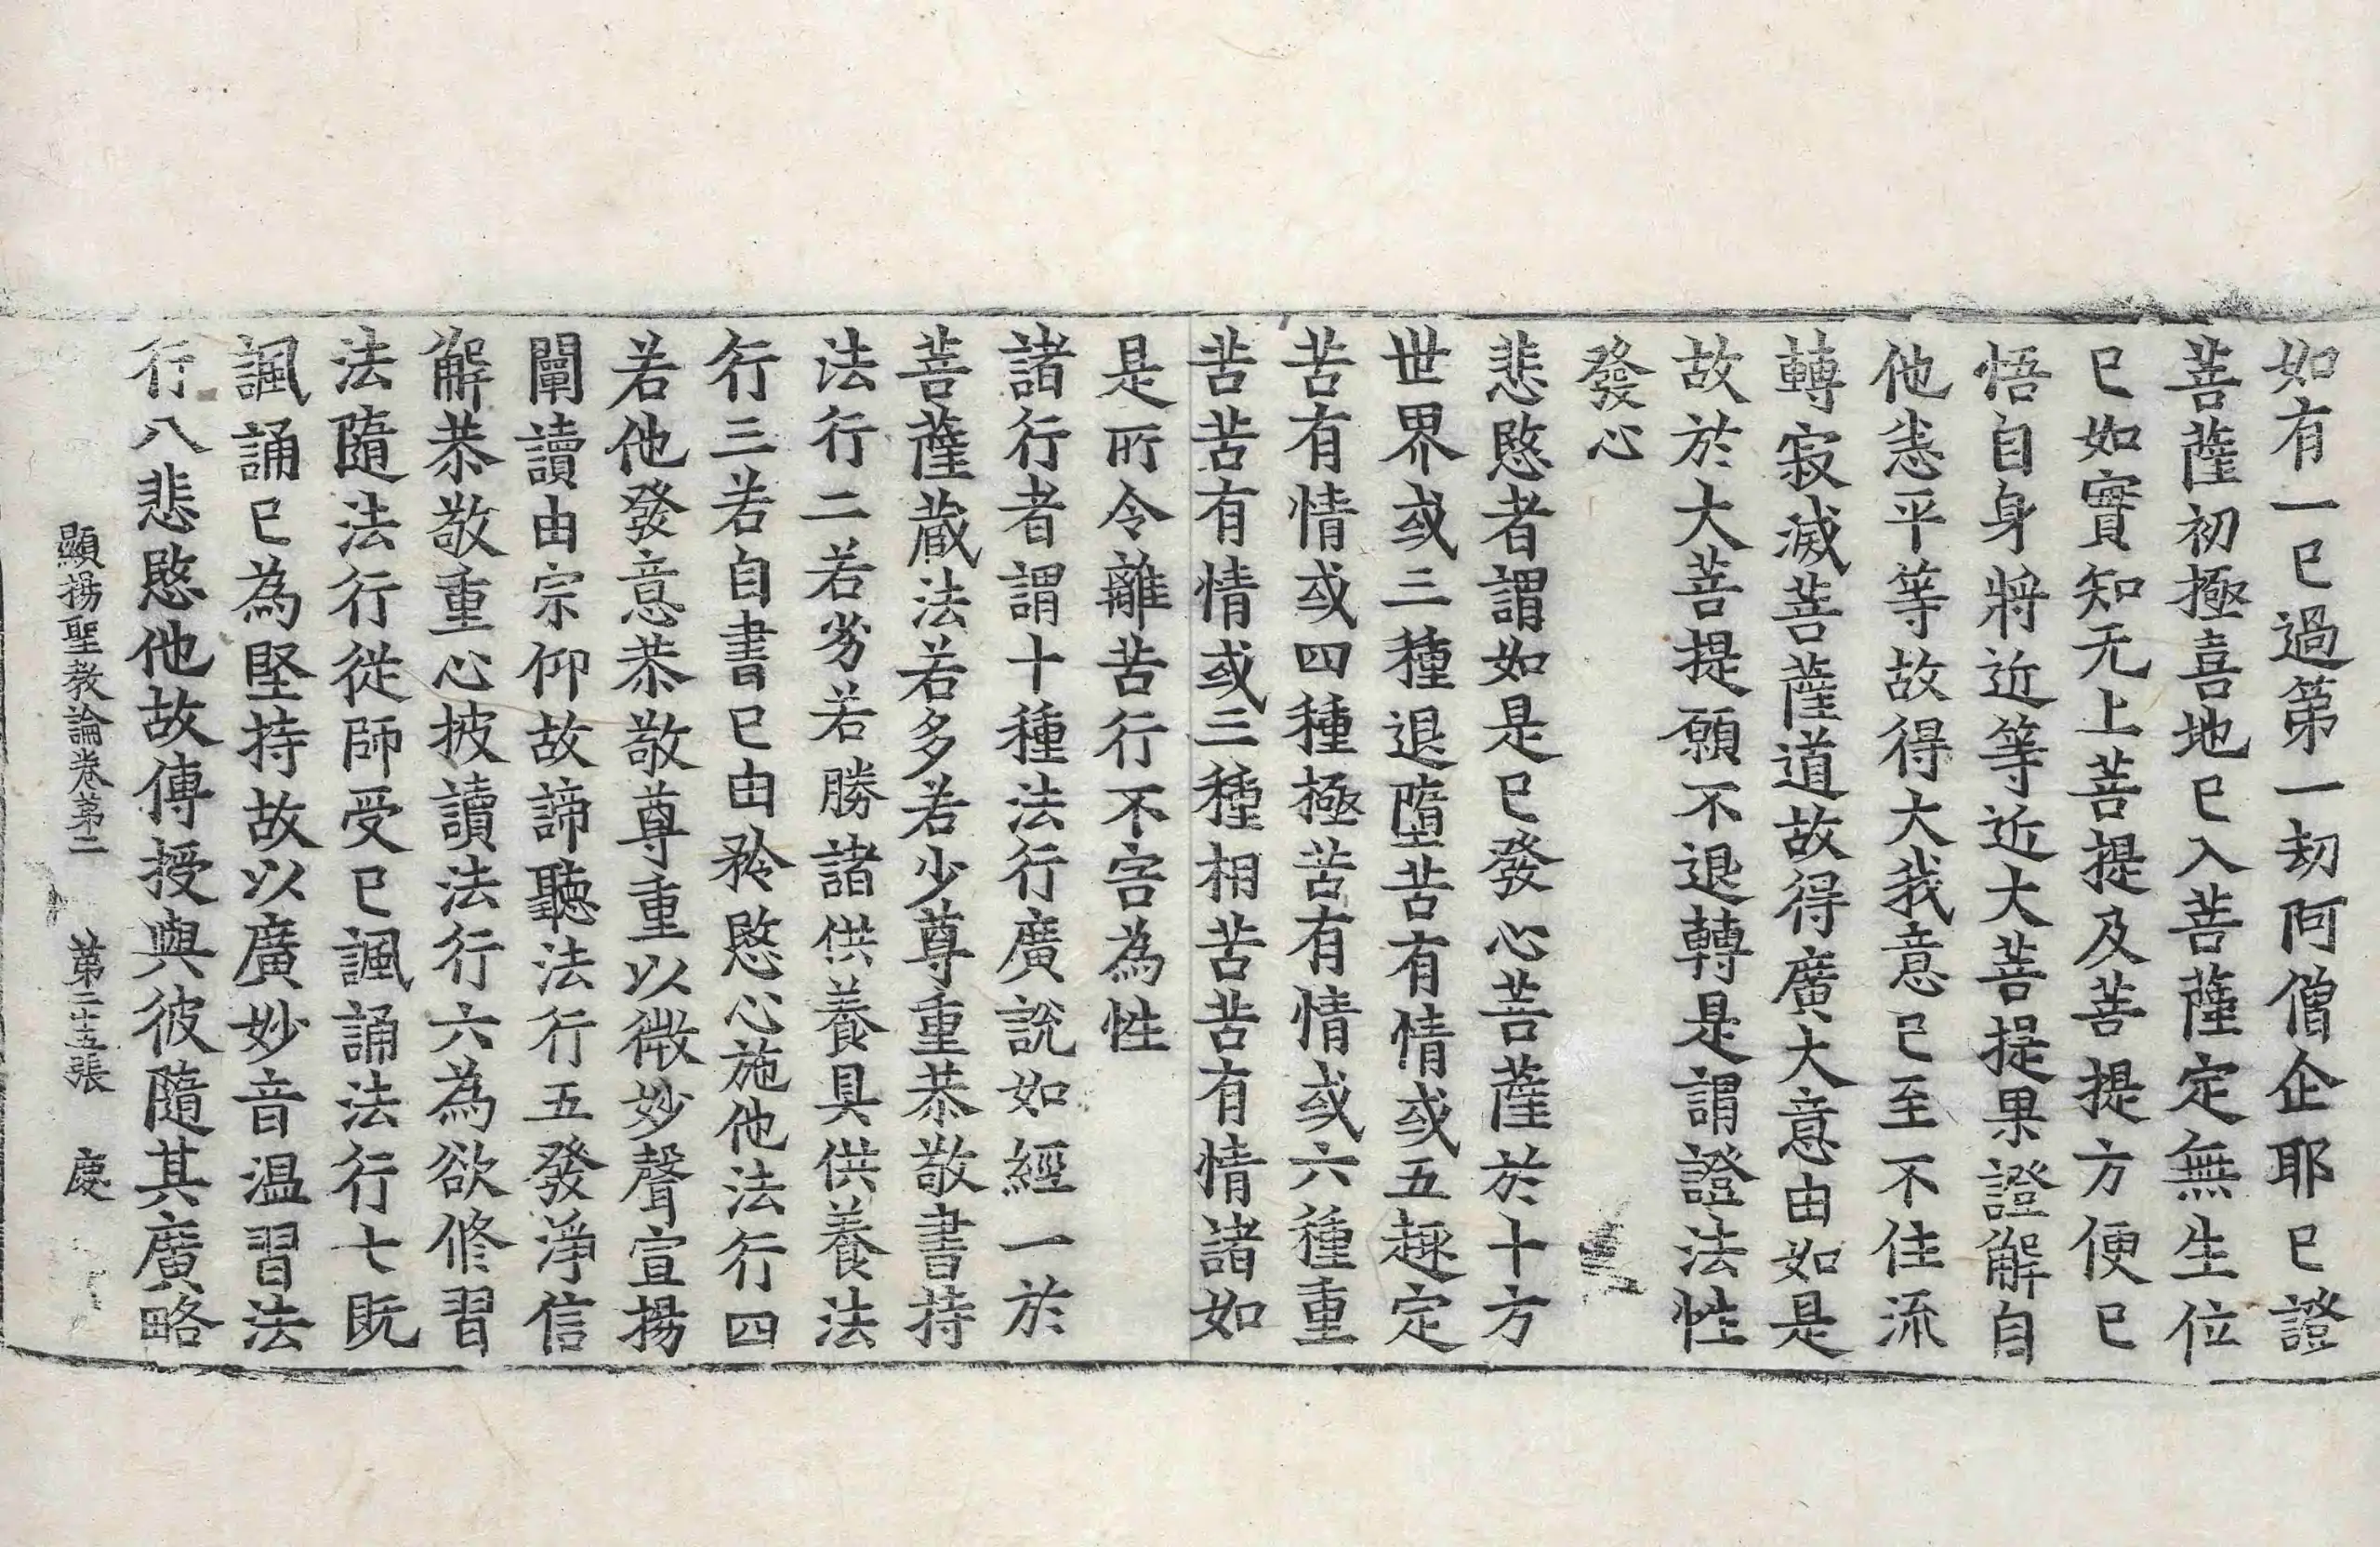 如有一已過第一劫阿僧企耶已證
菩薩初極喜地已入菩薩定無生位
已如實知无上菩提及菩提方便已
悟自身將近等近大菩提果證解自
他恙平等故得大我意已至不住流
轉寂滅菩薩道故得廣大意由如是
故於大菩提願不退轉是謂證法性
發心
悲愍者謂如是已發心菩薩於十方
世界或三種退墮苦有情或五趣定
苦有情或四種極苦有情或六種重
苦苦有情或三種相苦苦有情諸如
是所令離苦行不害為性
諸行者謂十種法行廣說如經一於
菩薩藏法若多若少尊重恭敬書持
法行二若劣若勝諸供養具供養法
行三若自書已由矜愍心施他法行四
若他發意恭敬尊重以微妙聲宣揚
闡讀由宗仰故諦聽法行五發淨信
解恭敬重心披讀法行六為欲修習
法隨法行從師受已諷誦法行七既
諷誦已為堅持故以廣妙音温習法
行八悲愍他故傳授與彼隨其廣略
顯揚聖教論卷第二 第二十五張 慶